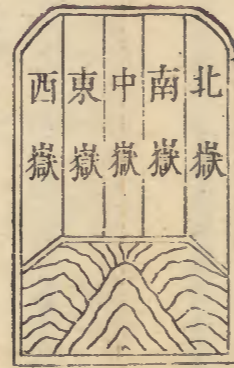 北嶽
南嶽
中嶽
東嶽
西嶽